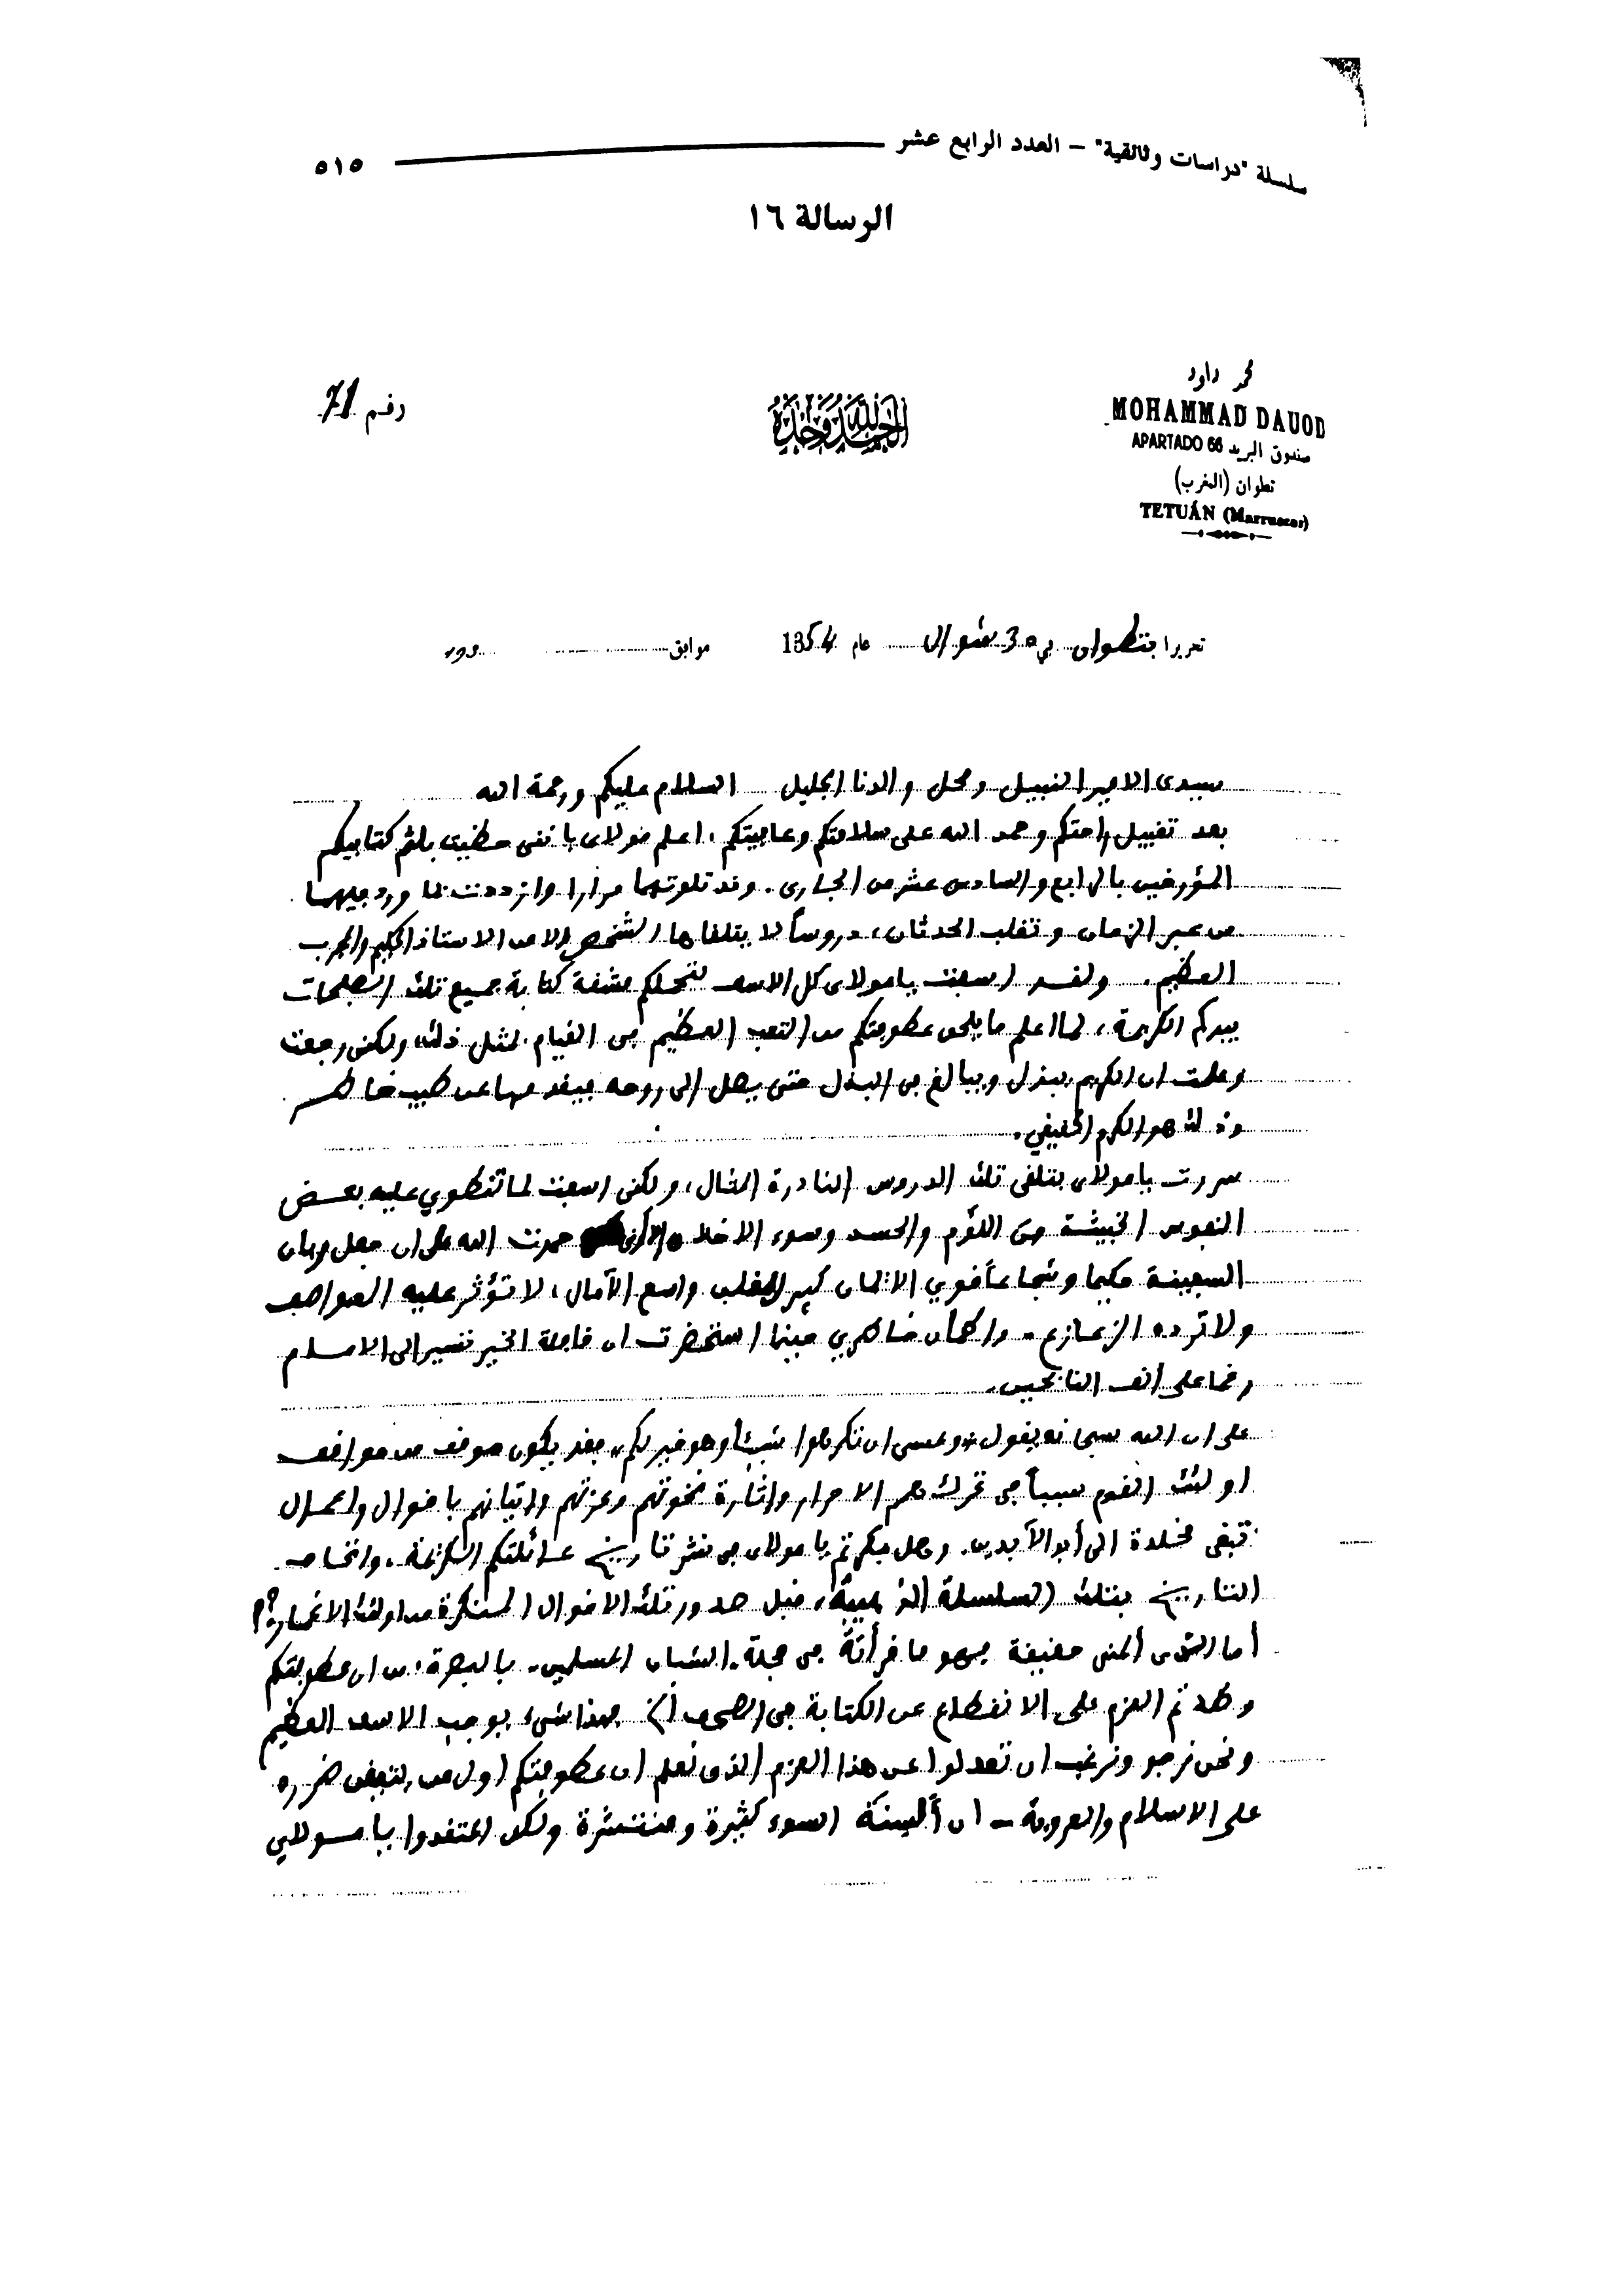 سلسلة "دراسات وثائقية" – العدد الرابع عشر ٥١٥
الرسالة ١٦
محمد داود
MOHAMMAD DAUOD
صندوق البريد APARTADO 66
تطوان (المغرب)
TETUÁN (Marruecos)
الحمد لله وحده
رقم 71
تحريرا بتطوان في 30 شوال عام 1354 موافق 193
سيدي الامير النبيل ومحل والدنا الجليل السلام عليكم ورحمة الله
بعد تقبيل راحتكم وحمد الله على سلامتكم وعافيتكم، اعلم مولاي بانني حظيت بلثم كتابيكم
المؤرخين بالرابع والسادس عشر من الجاري. وقد تلوتهما مرارا وازددت لما ورد فيهما
من عبر الزمان وتقلب الحدثان، دروساً لا يتلقاها الشخص إلا من الاستاذ الحكيم والمجرب
العظيم. ولقد اسفت يا مولاي كل الاسف لتحملكم مشقة كتابة جميع تلك الصفحات
بيدكم الكريمة، لما اعلم ما يلحق عطوفتكم من التعب العظيم في القيام بمثل ذلك، ولكني رجعت
وعلمت ان الكريم يبذل ويبالغ في البذل حتى يصل الى روحه فيقدمها عن طيب خاطر
وذلك هو الكرم الحقيقي.
سررت يا مولاي بتلقي تلك الدروس النادرة المثال، ولكني اسفت لما تنطوي عليه بعض
النفوس الخبيثة من اللؤم والحسد وسوء الاخلاق حمدت الله على ان جعل ربان
السفينة حكيما وشجاعاً قوي الايمان كبير القلب واسع الآمال، لا تؤثر عليه العواصف
ولا ترده الزعازع. واطمأن خاطري حينما استحضرت ان قافلة الخير تسير الى الامام
رغما على أنف النابحين.
على ان الله سبحانه يقول "وعسى ان تكرهوا شيئاً وهو خير لكم" فقد يكون موقف من مواقف
اولئك القوم سبباً في تحرك همم الاحرار واثارة نخوتهم وعزتهم واتيانهم باقوال واعمال
تبقى مخلدة الى أبد الآبدين. وهل فكرتم يا مولاي في نشر تاريخ عائلتكم الكريمة، واتحاف
التاريخ بتلك السلسلة الذهبية، قبل صدور تلك الاقوال المستنكرة من اولئك الاغمار؟؟
أما الشيء المني حقيقة فهو ما قرأته في مجلة الشبان المسلمين بالبصرة، من ان عطوفتكم
وطدتم العزم على الانقطاع عن الكتابة في الصحف الخ فهذا شيء يوجب الاسف العظيم
ونحن نرجو ونرغب ان تعدلوا عن هذا العزم الذي نعلم ان عطوفتكم اول من ضرره
على الاسلام والعروبة - ان ألسنة السوء كثيرة ومنتشرة ولكن اعتقدوا يا مولاي